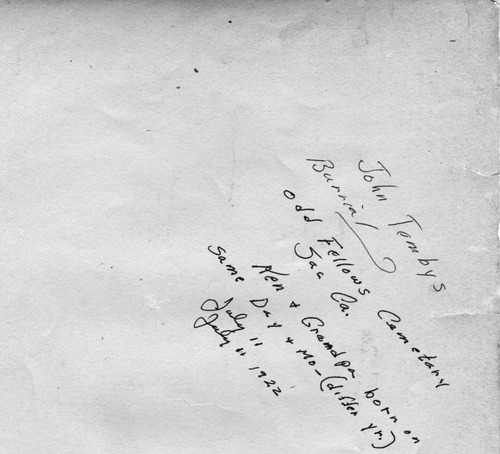 John Tembys
Burrial
Odd Fellows Cemetary
Sac Ca.
Ken & Grandpa born on
same Day & Mo - (differ yr.)
July 11
July 11 1922